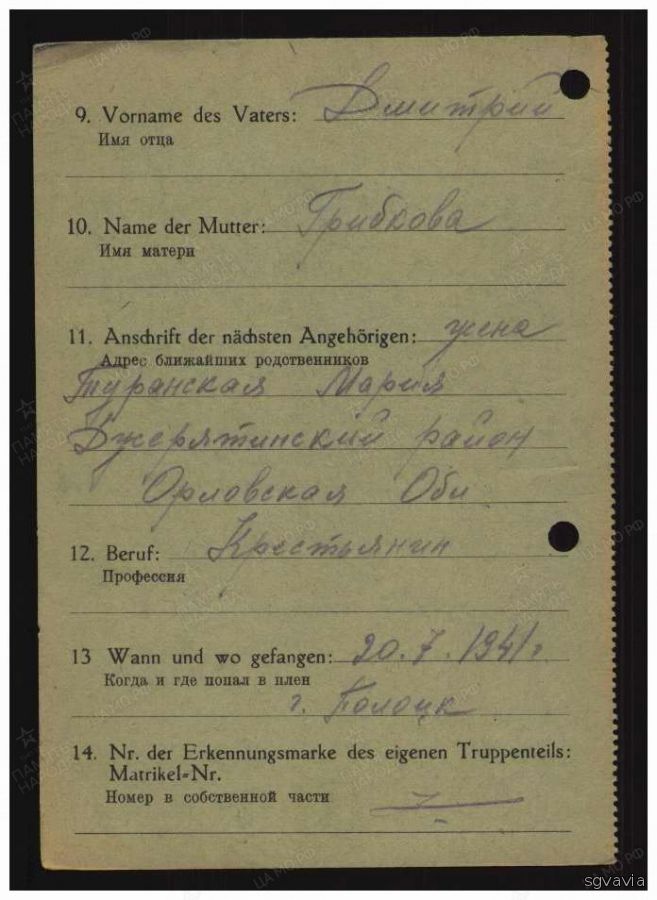 9. Vorname des Vaters: Дмитрий
Имя отца
10. Name der Mutter: Грибкова
Имя матери
11. Anschrift der nächsten Angehörigen: жена
Адрес ближайших родственников
Туранская Мария
район
Орловская Обл
12. Beruf: Крестьянин
Профессия
13 Wann und wo gefangen: 20.7.1941г.
Когда и где попал в плен
г. Полоцк
14. Nr. der Erkennungsmarke des eigenen Truppenteils:
Matrikel-Nr.
Номер в собственной части
sgvavia